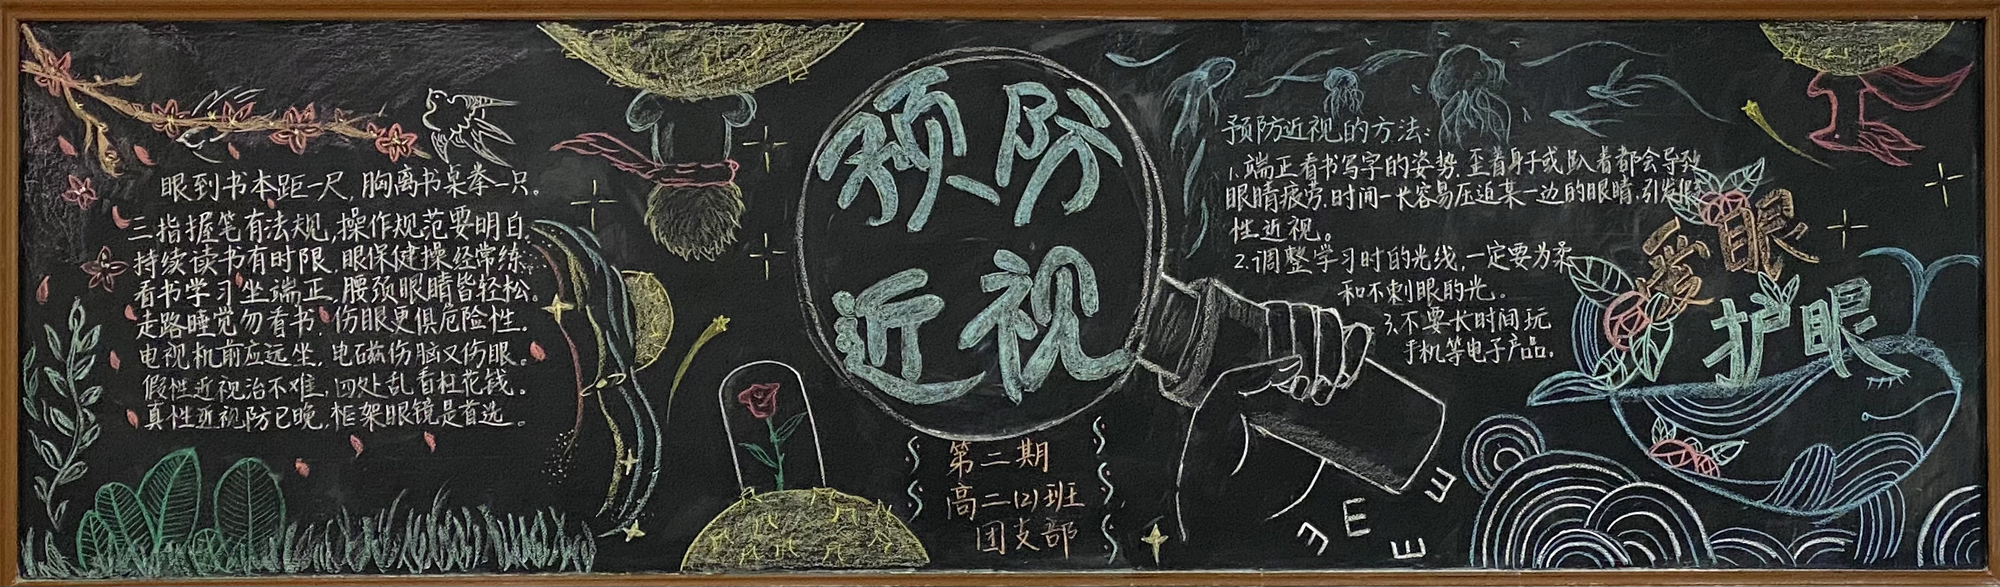 眼到书本距一尺，胸离书桌拳一只。
二指握笔有法规，操作规范要明白。
持续读书有时限，眼保健操经常练。
看书学习坐端正，腰颈眼睛皆轻松。
走路睡觉勿看书，伤眼更俱危险性。
电视机前应远坐，电磁伤脑又伤眼。
假性近视治不难，四处乱看枉花钱。
真性近视防已晚，框架眼镜是首选。
预防
近视
第二期
高二(2)班
团支部
预防近视的方法：
1.端正看书写字的姿势，歪着身子或趴着都会导致
眼睛疲劳，时间一长容易压迫某一边的眼睛，引发假
性近视。
2.调整学习时的光线，一定要为柔
和不刺眼的光。
3.不要长时间玩
手机等电子产品。
爱眼
护眼
E
E
E
E